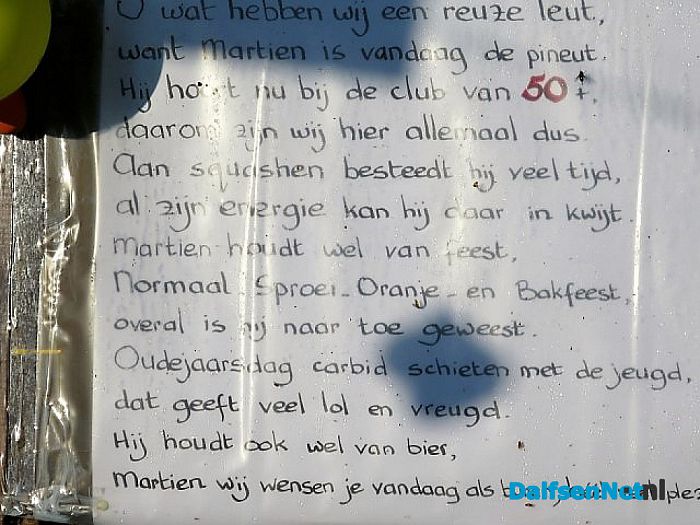 O wat hebben wij een reuze leut,
want Martien is vandaag de pineut.
Hij hoort nu bij de club van 50+,
daarom zijn wij hier allemaal dus.
Aan squashen besteedt hij veel tijd,
al zijn energie kan hij daar in kwijt.
Martien houdt wel van feest,
Normaal, Sproei-Oranje- en Bakfeest,
overal is hij naar toe geweest.
Oudejaarsdag carbid schieten met de jeugd,
dat geeft veel lol en vreugd.
Hij houdt ook wel van bier,
Martien wij wensen je vandaag als
DalfsenNet.nl